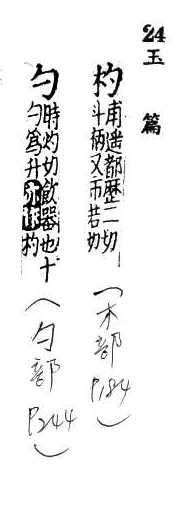 24玉篇
杓甫遥都歷二切斗柄又市若切(木部P.184)
勺時灼切飲器也十勺爲升亦作杓(勺部P.244)